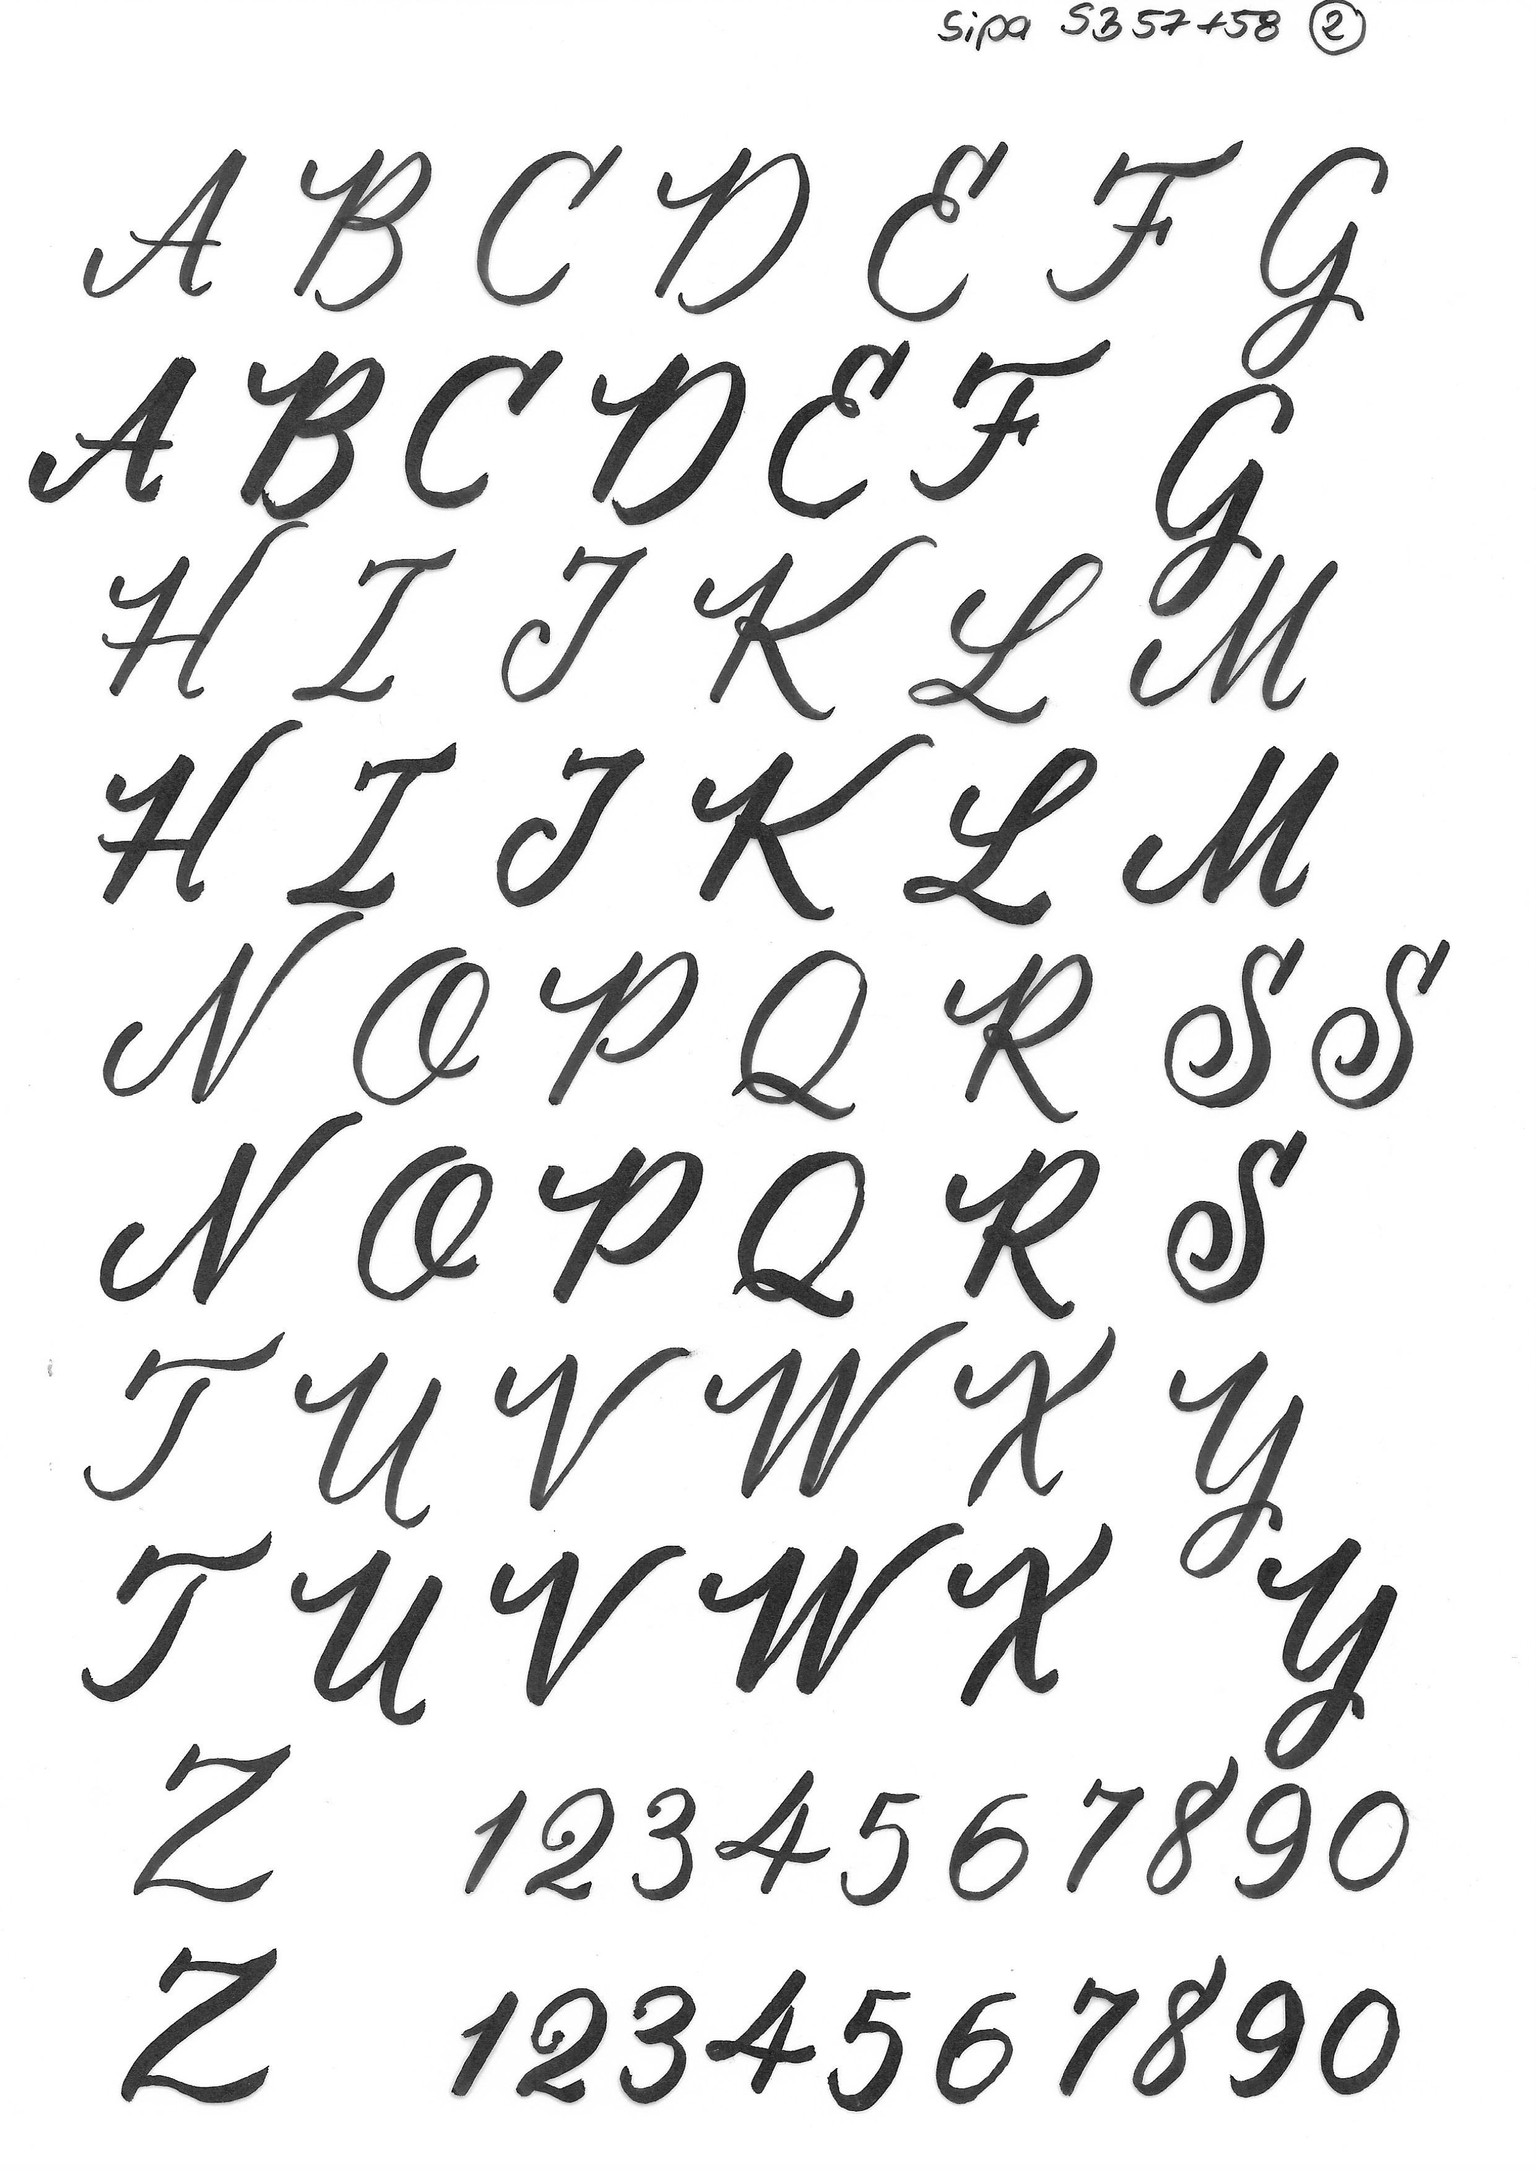 Sipa SB57+58 ②
A B C D E F G
A B C D E F G
H I J K L M
H I J K L M
N O P Q R S S
N O P Q R S
T U V W X Y
T U V W X Y
Z 1 2 3 4 5 6 7 8 9 0
Z 1 2 3 4 5 6 7 8 9 0